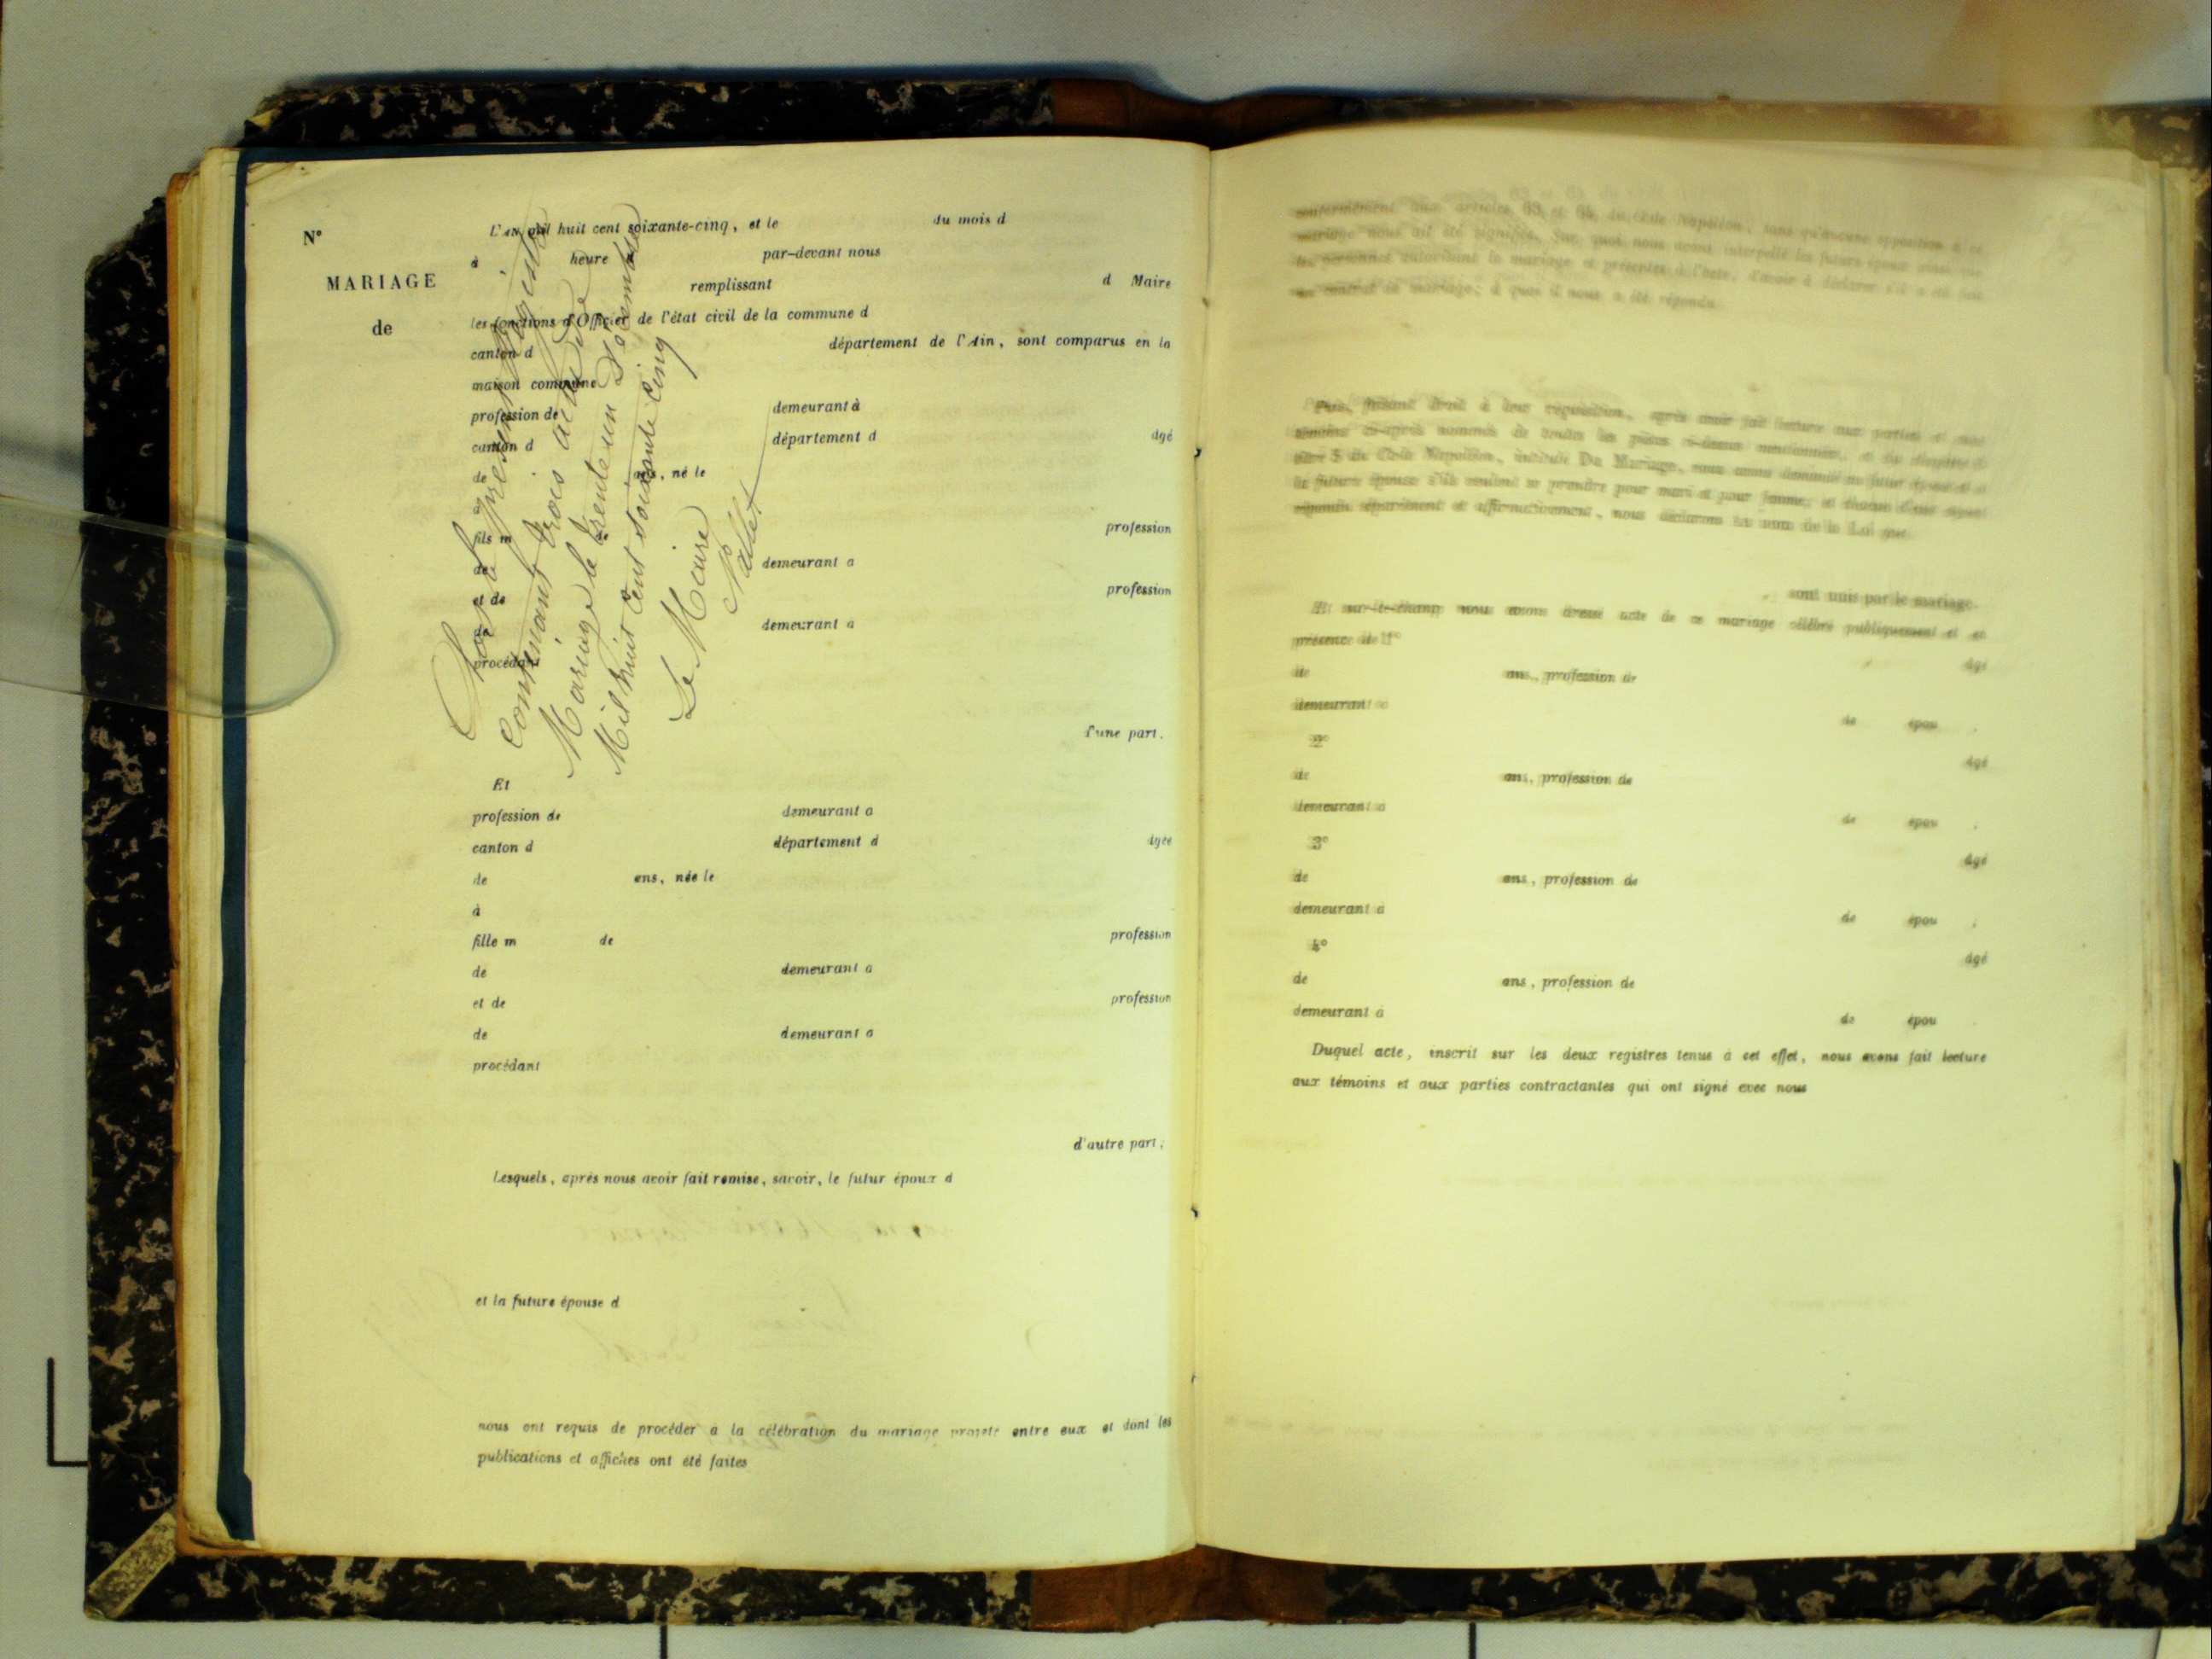 N°
MARIAGE
de
L'AN mil huit cent soixante-cinq, et le du mois d
à heure par-devant nous
remplissant d Maire
les fonctions d'Officier de l'état civil de la commune d
canton d département de l'Ain, sont comparus en la
maison commune
profession de demeurant à
canton d département d âgé
de ans, né le
à
fils m de profession
de demeurant a
et de profession
de demeurant a
procédant
d'une part.
Clos le présent Registre
contenant trois actes de
Mariage le trente un Décembre
Mil huit Cent Soixante Cinq
Le Maire
Nallet
Et
profession de demeurant a
canton d département d âgée
de ans, née le
à
fille m de profession
de demeurant a
et de profession
de demeurant a
procédant
d'autre part;
Lesquels, après nous avoir fait remise, savoir, le futur époux d
et la future épouse d
nous ont requis de procéder à la célébration du mariage projeté entre eux et dont les
publications et affiches ont été faites
conformément aux articles 63 et 64 du Code Napoléon, sans qu'aucune opposition à ce
mariage nous ait été signifiée. Sur quoi nous avons interpellé les futurs époux ainsi que
les personnes autorisant le mariage et présentes à l'acte, d'avoir à déclarer s'il a été fait
un contrat de mariage; à quoi il nous a été répondu
Puis, faisant droit à leur réquisition, après avoir fait lecture aux parties et aux
témoins ci-après nommés de toutes les pièces ci-dessus mentionnées, et du chapitre 6
titre 5 du Code Napoléon, intitulé Du Mariage, nous avons demandé au futur époux et à
la future épouse s'ils veulent se prendre pour mari et pour femme; et chacun d'eux ayant
répondu séparément et affirmativement, nous déclarons au nom de la Loi que
sont unis par le mariage.
Et sur-le-champ nous avons dressé acte de ce mariage célébré publiquement et en
présence de 1°
âgé
de ans, profession de
demeurant à
de épou .
2°
âgé
de ans, profession de
demeurant a
de épou .
3°
âgé
de ans, profession de
demeurant à
de épou .
4°
âgé
de ans, profession de
demeurant à
de épou
Duquel acte, inscrit sur les deux registres tenus à cet effet, nous avons fait lecture
aux témoins et aux parties contractantes qui ont signé avec nous